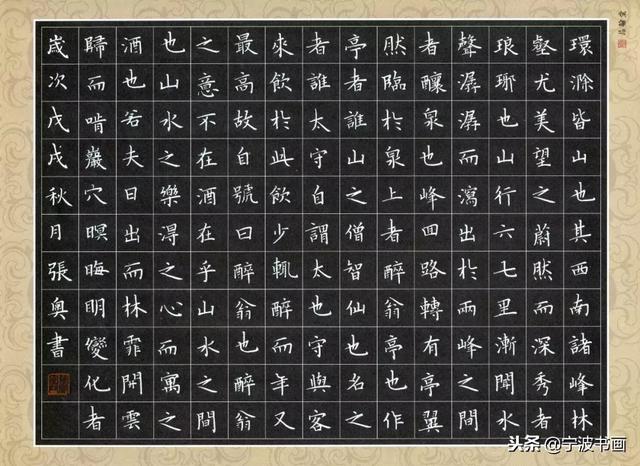 環滁皆山也其西南諸峰林
壑尤美望之蔚然而深秀者
琅琊也山行六七里漸聞水
聲潺潺而瀉出於兩峰之間
者釀泉也峰回路轉有亭翼
然臨於泉上者醉翁亭也作
亭者誰山之僧智仙也名之
者誰太守自謂太也守與客
來飲於此飲少輒醉而年又
最高故自號曰醉翁也醉翁
之意不在酒在乎山水之間
也山水之樂得之心而寓之
酒也若夫日出而林霏開雲
歸而啃巖穴暝晦明變化者
歲次戊戌秋月張奧書
头条@宁波书画